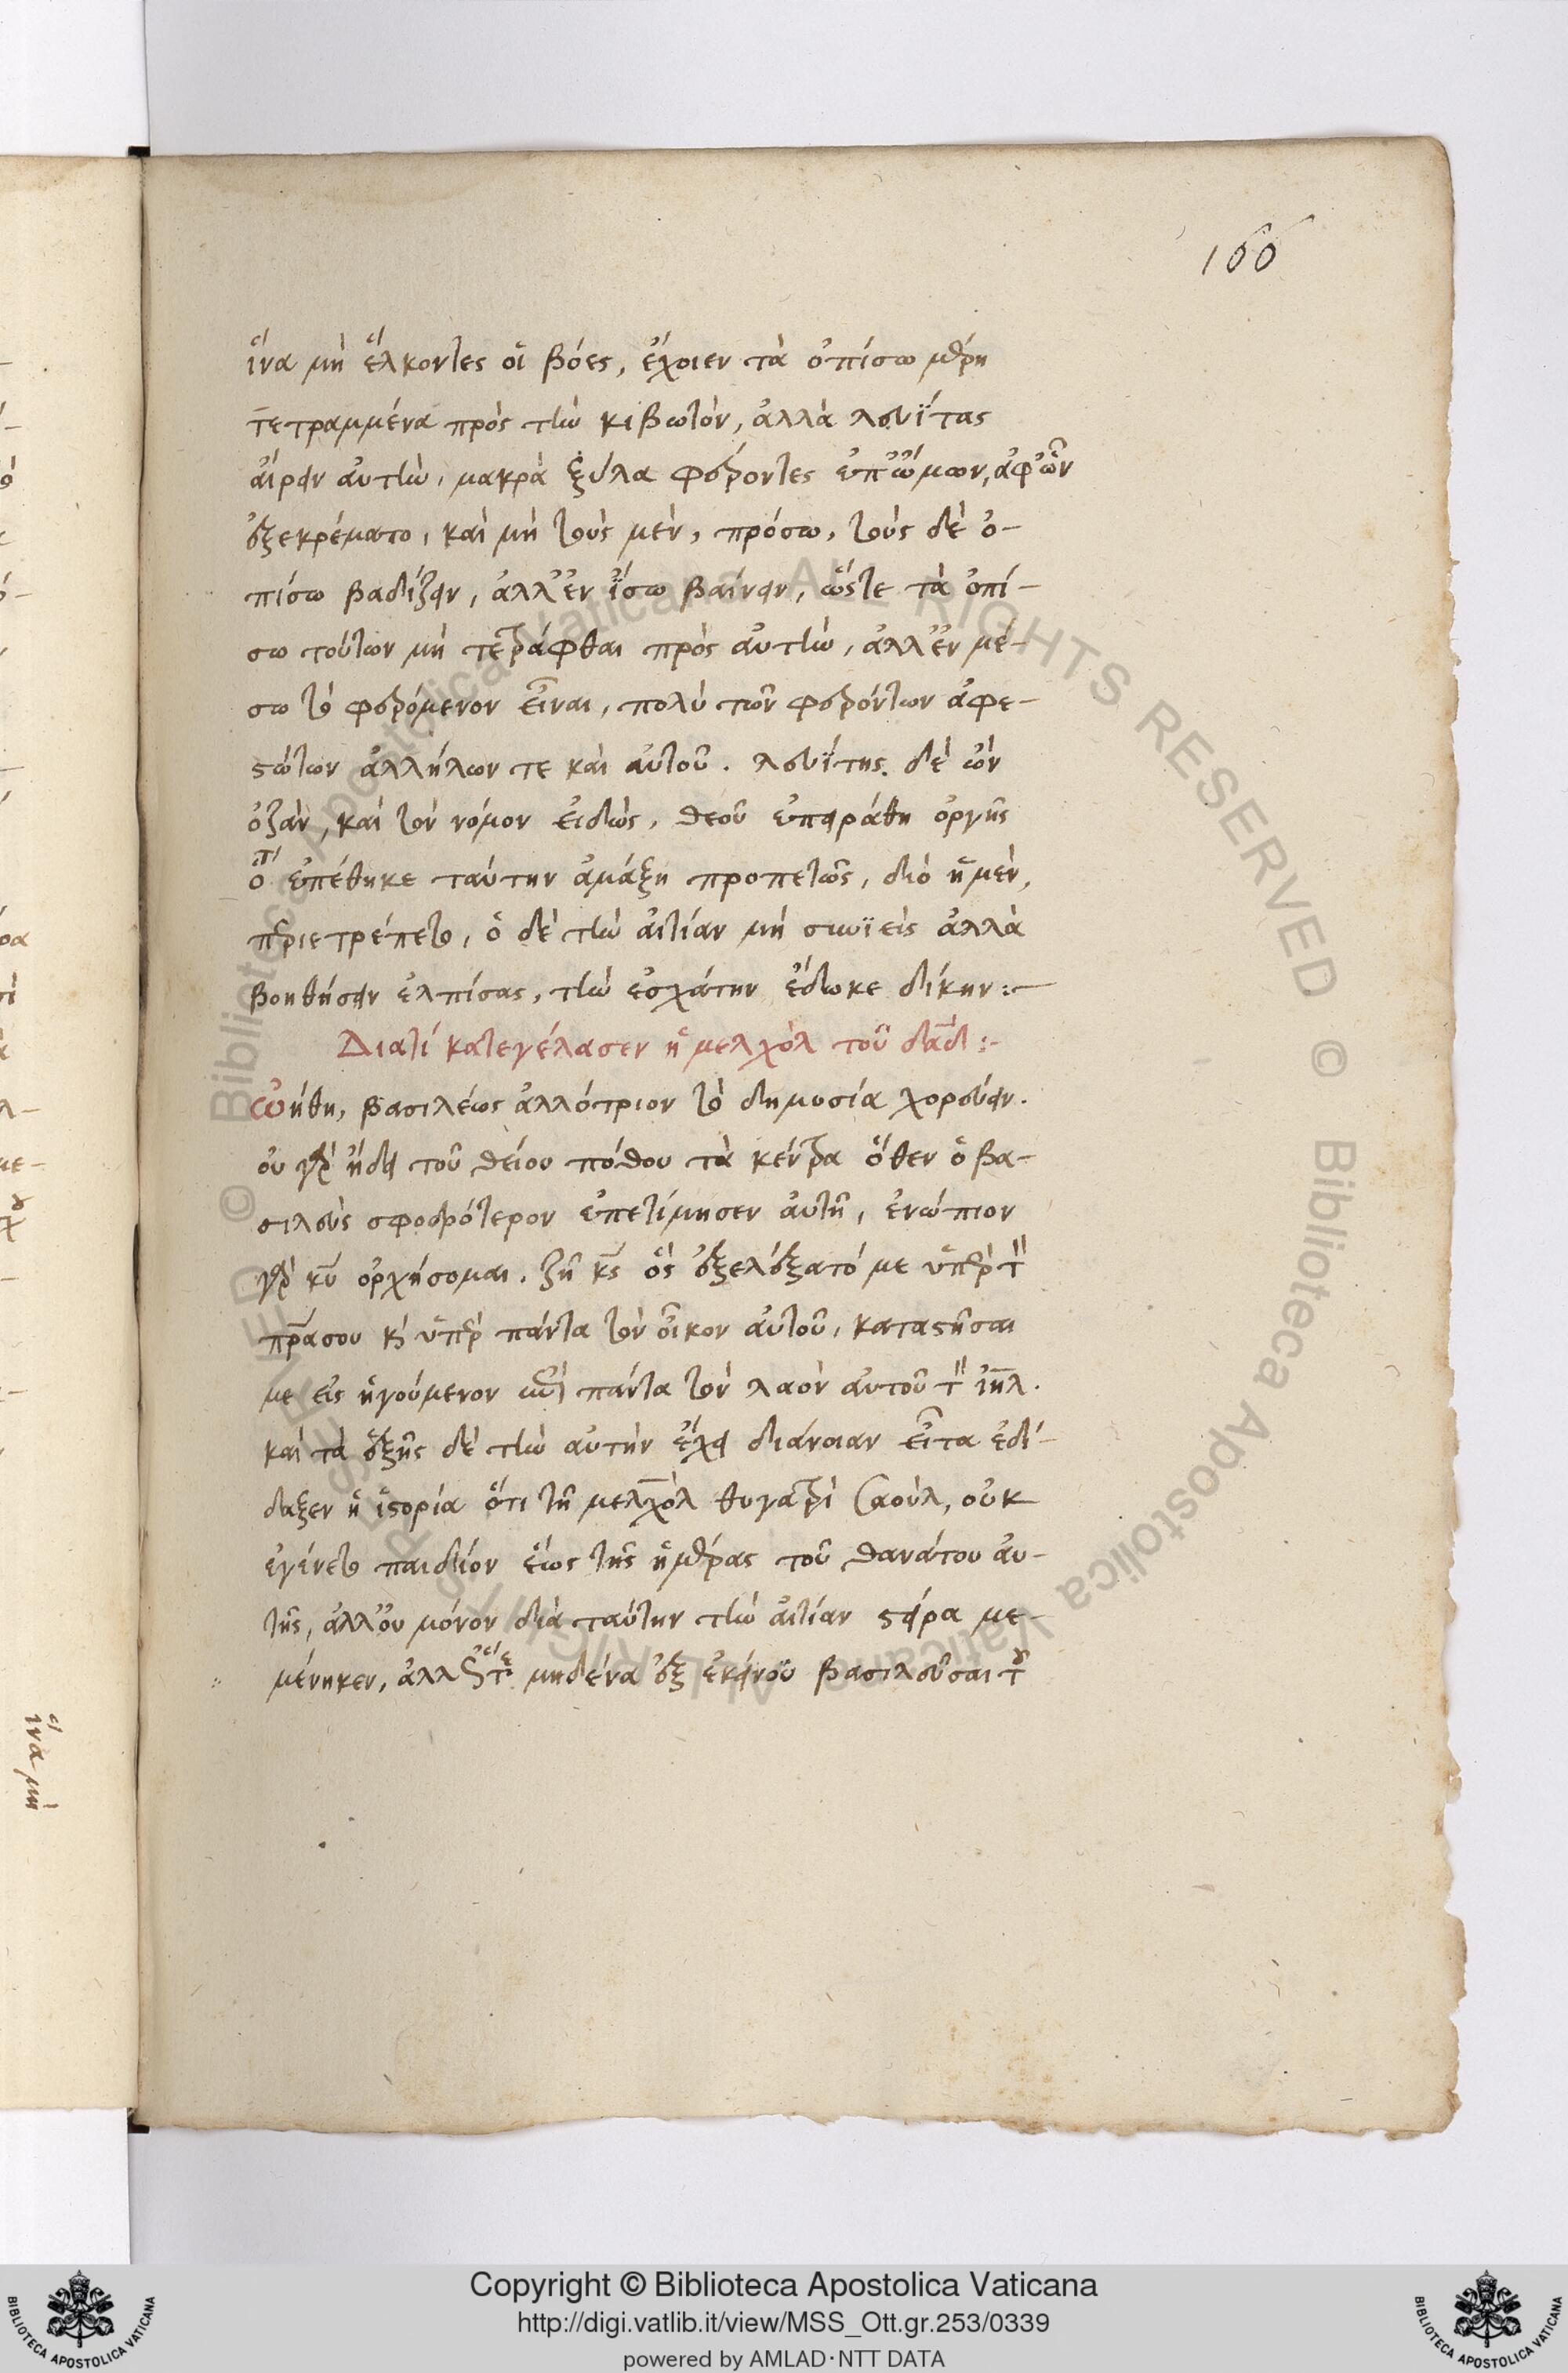 166
ἵνα μὴ ἕλκοντες οἱ βόες, ἔχοιεν τὰ ὀπίσω μέρη
τετραμμένα πρὸς τὴν κιβωτόν, ἀλλὰ λευΐτας
αἴρειν αὐτὴν, μακρὰ ξύλα φέροντες ἐπ' ὤμων, ἀφ' ὧν
ἐξεκρέματο, καὶ μὴ τοὺς μὲν, πρόσω, τοὺς δὲ ὀ-
πίσω βαδίζειν, ἀλλ' ἐν ἴσω βαίνειν, ὥστε τὰ ὀπί-
σω τούτων μὴ τετράφθαι πρὸς αὐτὴν, ἀλλ' ἐν μέ-
σω τὸ φερόμενον εἶναι, πολὺ τῶν φερόντων ἀφε-
στώτων ἀλλήλων τε καὶ αὐτοῦ. λευΐτης δὲ ὢν
ὀζὰν, καὶ τὸν νόμον εἰδὼς, θεοῦ ἐπειράθη ὀργῆς
ὅτι ἐπέθηκε ταύτην ἀμάξη προπετῶς, διὸ ἡ μὲν,
περιετρέπετο, ὁ δὲ τὴν αἰτίαν μὴ συνϊεὶς ἀλλὰ
βοηθήσειν ἐλπίσας, τὴν ἐσχάτην ἔδωκε δίκην:
Διατί κατεγέλασεν ἡ μελχὸλ τοῦ δαδ:
ᾠήθη, βασιλέως ἀλλότριον τὸ δημοσία χορεύειν.
οὐ γὰρ ἤδει τοῦ θείου πόθου τὰ κέντρα ὅθεν ὁ βα-
σιλεὺς σφοδρότερον ἐπετίμησεν αὐτῆ, ἐνώπιον
γὰρ κυ ὀρχήσομαι. ζῆ κς ὃς ἐξελέξατό με ὑπὲρ τὸν
πρασου κ ὑπὲρ πάντα τὸν οἶκον αὐτοῦ, καταστῆσαι
με εἰς ἡγούμενον ἐπὶ πάντα τὸν λαὸν αὐτοῦ τὸν ιηλ.
καὶ τὰ ἑξῆς δὲ τὴν αὐτὴν ἔχει διάνοιαν εἶτα ἐδί-
δαξεν ἡ ἱστορία ὅτι τῆ μελχὸλ θυγατρὶ Σαούλ, οὐκ
ἐγένετο παιδίον ἕως τῆς ἡμέρας τοῦ θανάτου αὐ-
τῆς, ἀλλ' οὐ μόνον διὰ ταύτην τὴν αἰτίαν στείρα με-
μένηκεν, μηδένα ἐξ ἐκείνου βασιλεῦσαι τοῦ
ἵνα μὴ
Copyright © Biblioteca Apostolica Vaticana
http://digi.vatlib.it/view/MSS_Ott.gr.253/0339
powered by AMLAD·NTT DATA